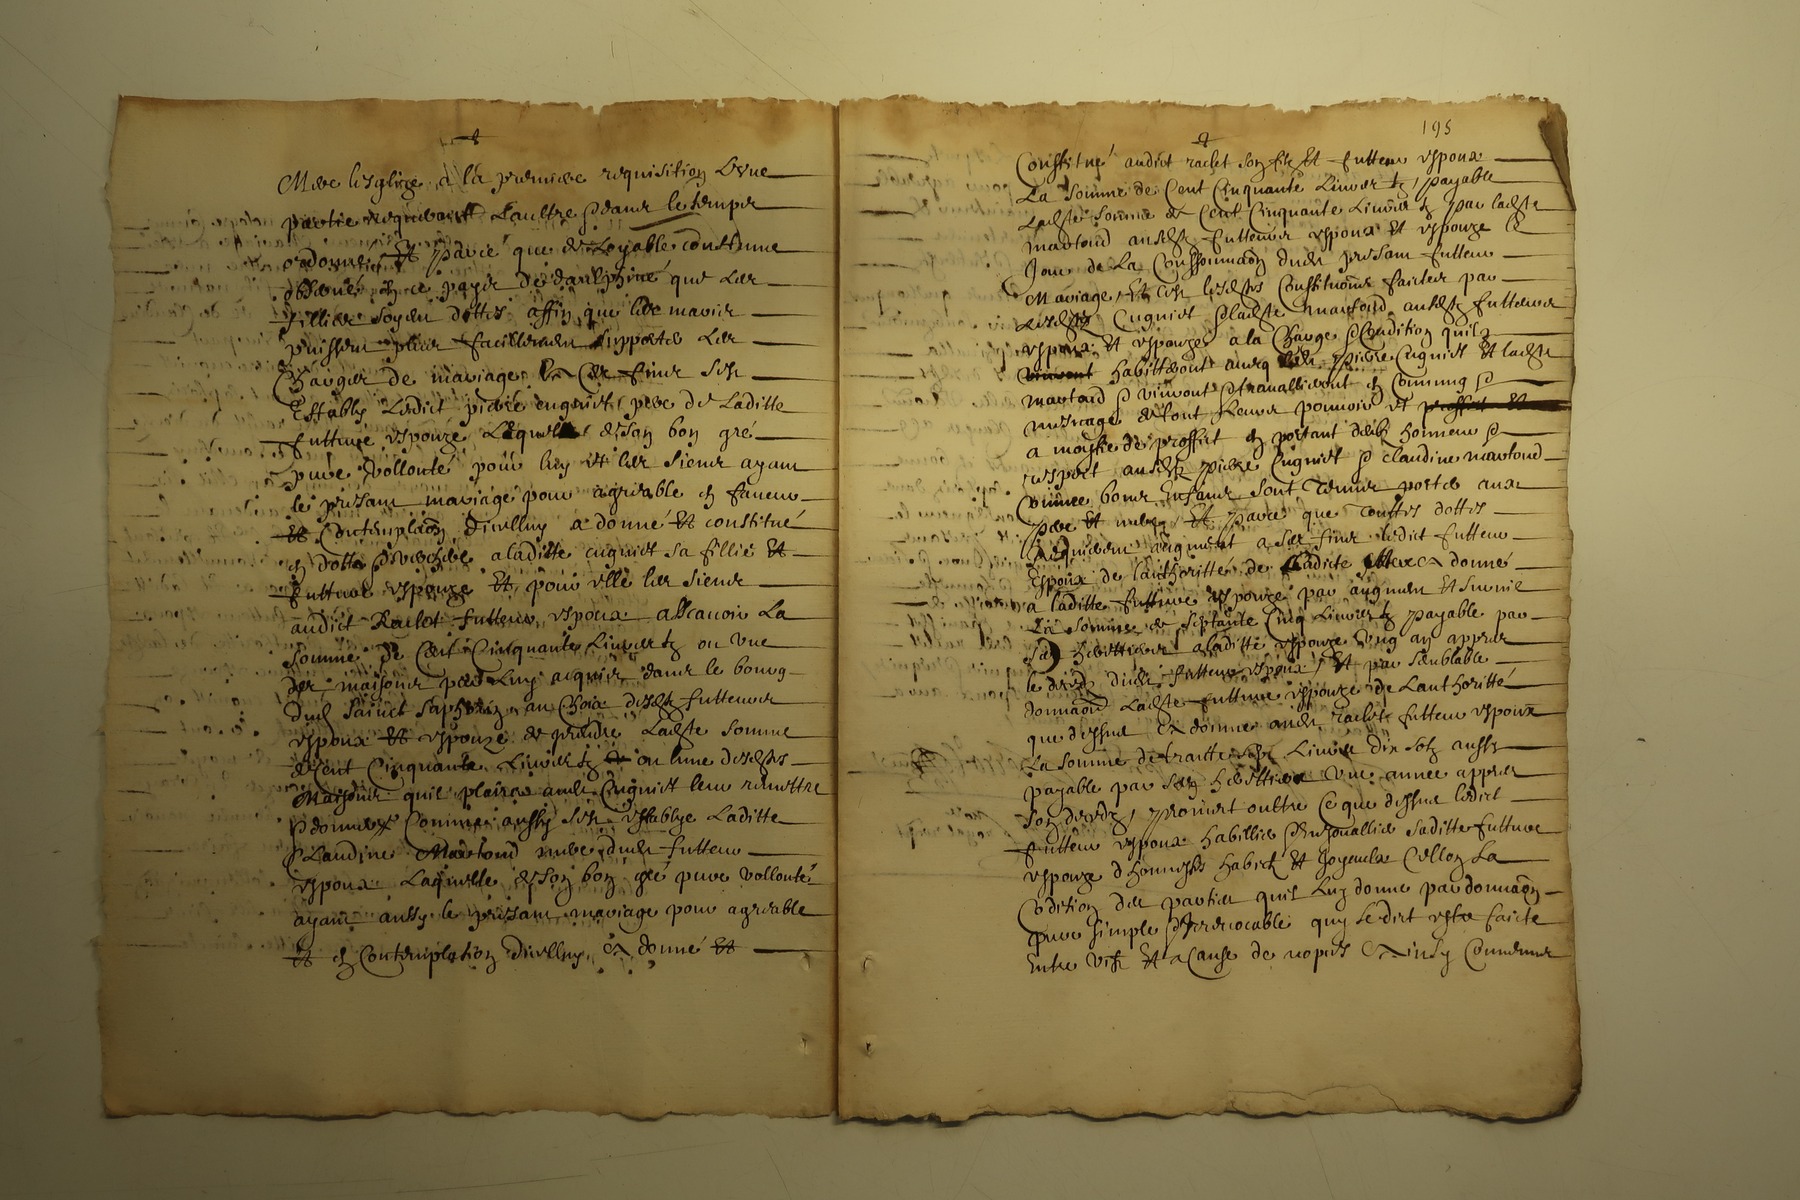 Mere lesglize a la premiere requisition Lvne
partie requerant Laultre & dans le temps
ordonné Et parce que de Loyable constume
observé en ce pays de daulphiné que Les
filles soyent dottes affin que les maris
puissent plus facillement supporter Les
Charges de mariage A Ces fins sest
Establi Ledict pierre cugniet pere de Laditte
futture espouze Lequel de son bon gré
pure vollonté pour luy et les siens ayant
le presant mariage pour agreable en faveur
Et Contemplaon dicelluy a donné Et constitué
en dotte & verchere a laditte cugniet sa fillie Et
futture espouze Et pour elle les siens
audict Raclet futteur espoux assavoir La
somme de Cent Cinquante Livres tz ou vne
des maisons par Luy acquis dans le bourg
dud Sainct Saphorin au Choix desdts futteurs
espoux Et espouze de prendre Ladte somme
de Cent Cinquante Livres tz ou lune desdtes
Maisons quil plaira audt Cugniet leur remettre
& donner Comme aussy sest establye Laditte
Claudine Martoud mere dudt futteur
espoux Laquelle de son bon gré pure vollonté
ayant aussy le presant mariage pour agreable
Et en Contemplation dicelluy A donné Et
195
Constitué audict raclet son filz Et futteur espoux
La somme de Cent Cinquante Livres tz payable
Ladte somme de Cent Cinquante Livres tz par ladte
martoud ausdts futteurs espoux Et espouze Le
Jour de La Consommaon dudt presant futteur
Mariage Et Cest lesdtes Constitutions faictes par
Lesdts Cugniet & ladte martoud ausdts futteurs
espoux Et espouze a la Charge & Condition quilz
habitteront avecq ledt pierre Cugniet Et ladte
martoud & vivront & travallieront en Commung &
mesnage de tout Leurs pouvoir et
a moytie de proffict en portant delib honneur &
respect ausdts pierre Cugniet & claudine martoud
Comme bons Enfans sont Tenus porter aux
pere Et mere Et parce que touttes dottes
Requierent augment a Ses fins ledict futteur
Espoux de l'authoritté de Ladicte A donné
a laditte futture espouze par augment Et survie
La somme de septante Cinq Livres tz payable par
Ses herittiers a laditte espouze vng an appres
le deces dudt futteur espoux Et par semblable
donnaon Ladte futture espouze de Lauthoritté
que dessus A donné audt raclet futteur espoux
La somme de trantte sept Livres dix solz aussy
payable par Ses herittiers vne annee appres
son deces promet outtre Ce que dessus ledict
futteur espoux habillier & enjouallier saditte futture
espouze d'honnestes habitz Et Joyaulx Cellon La
Codition des parties quil Luy donne par donnaon
pure simple & Irrevocable quy se dict estre faicte
Entre vifz Et a Cause de nopces Ainsy Convenus